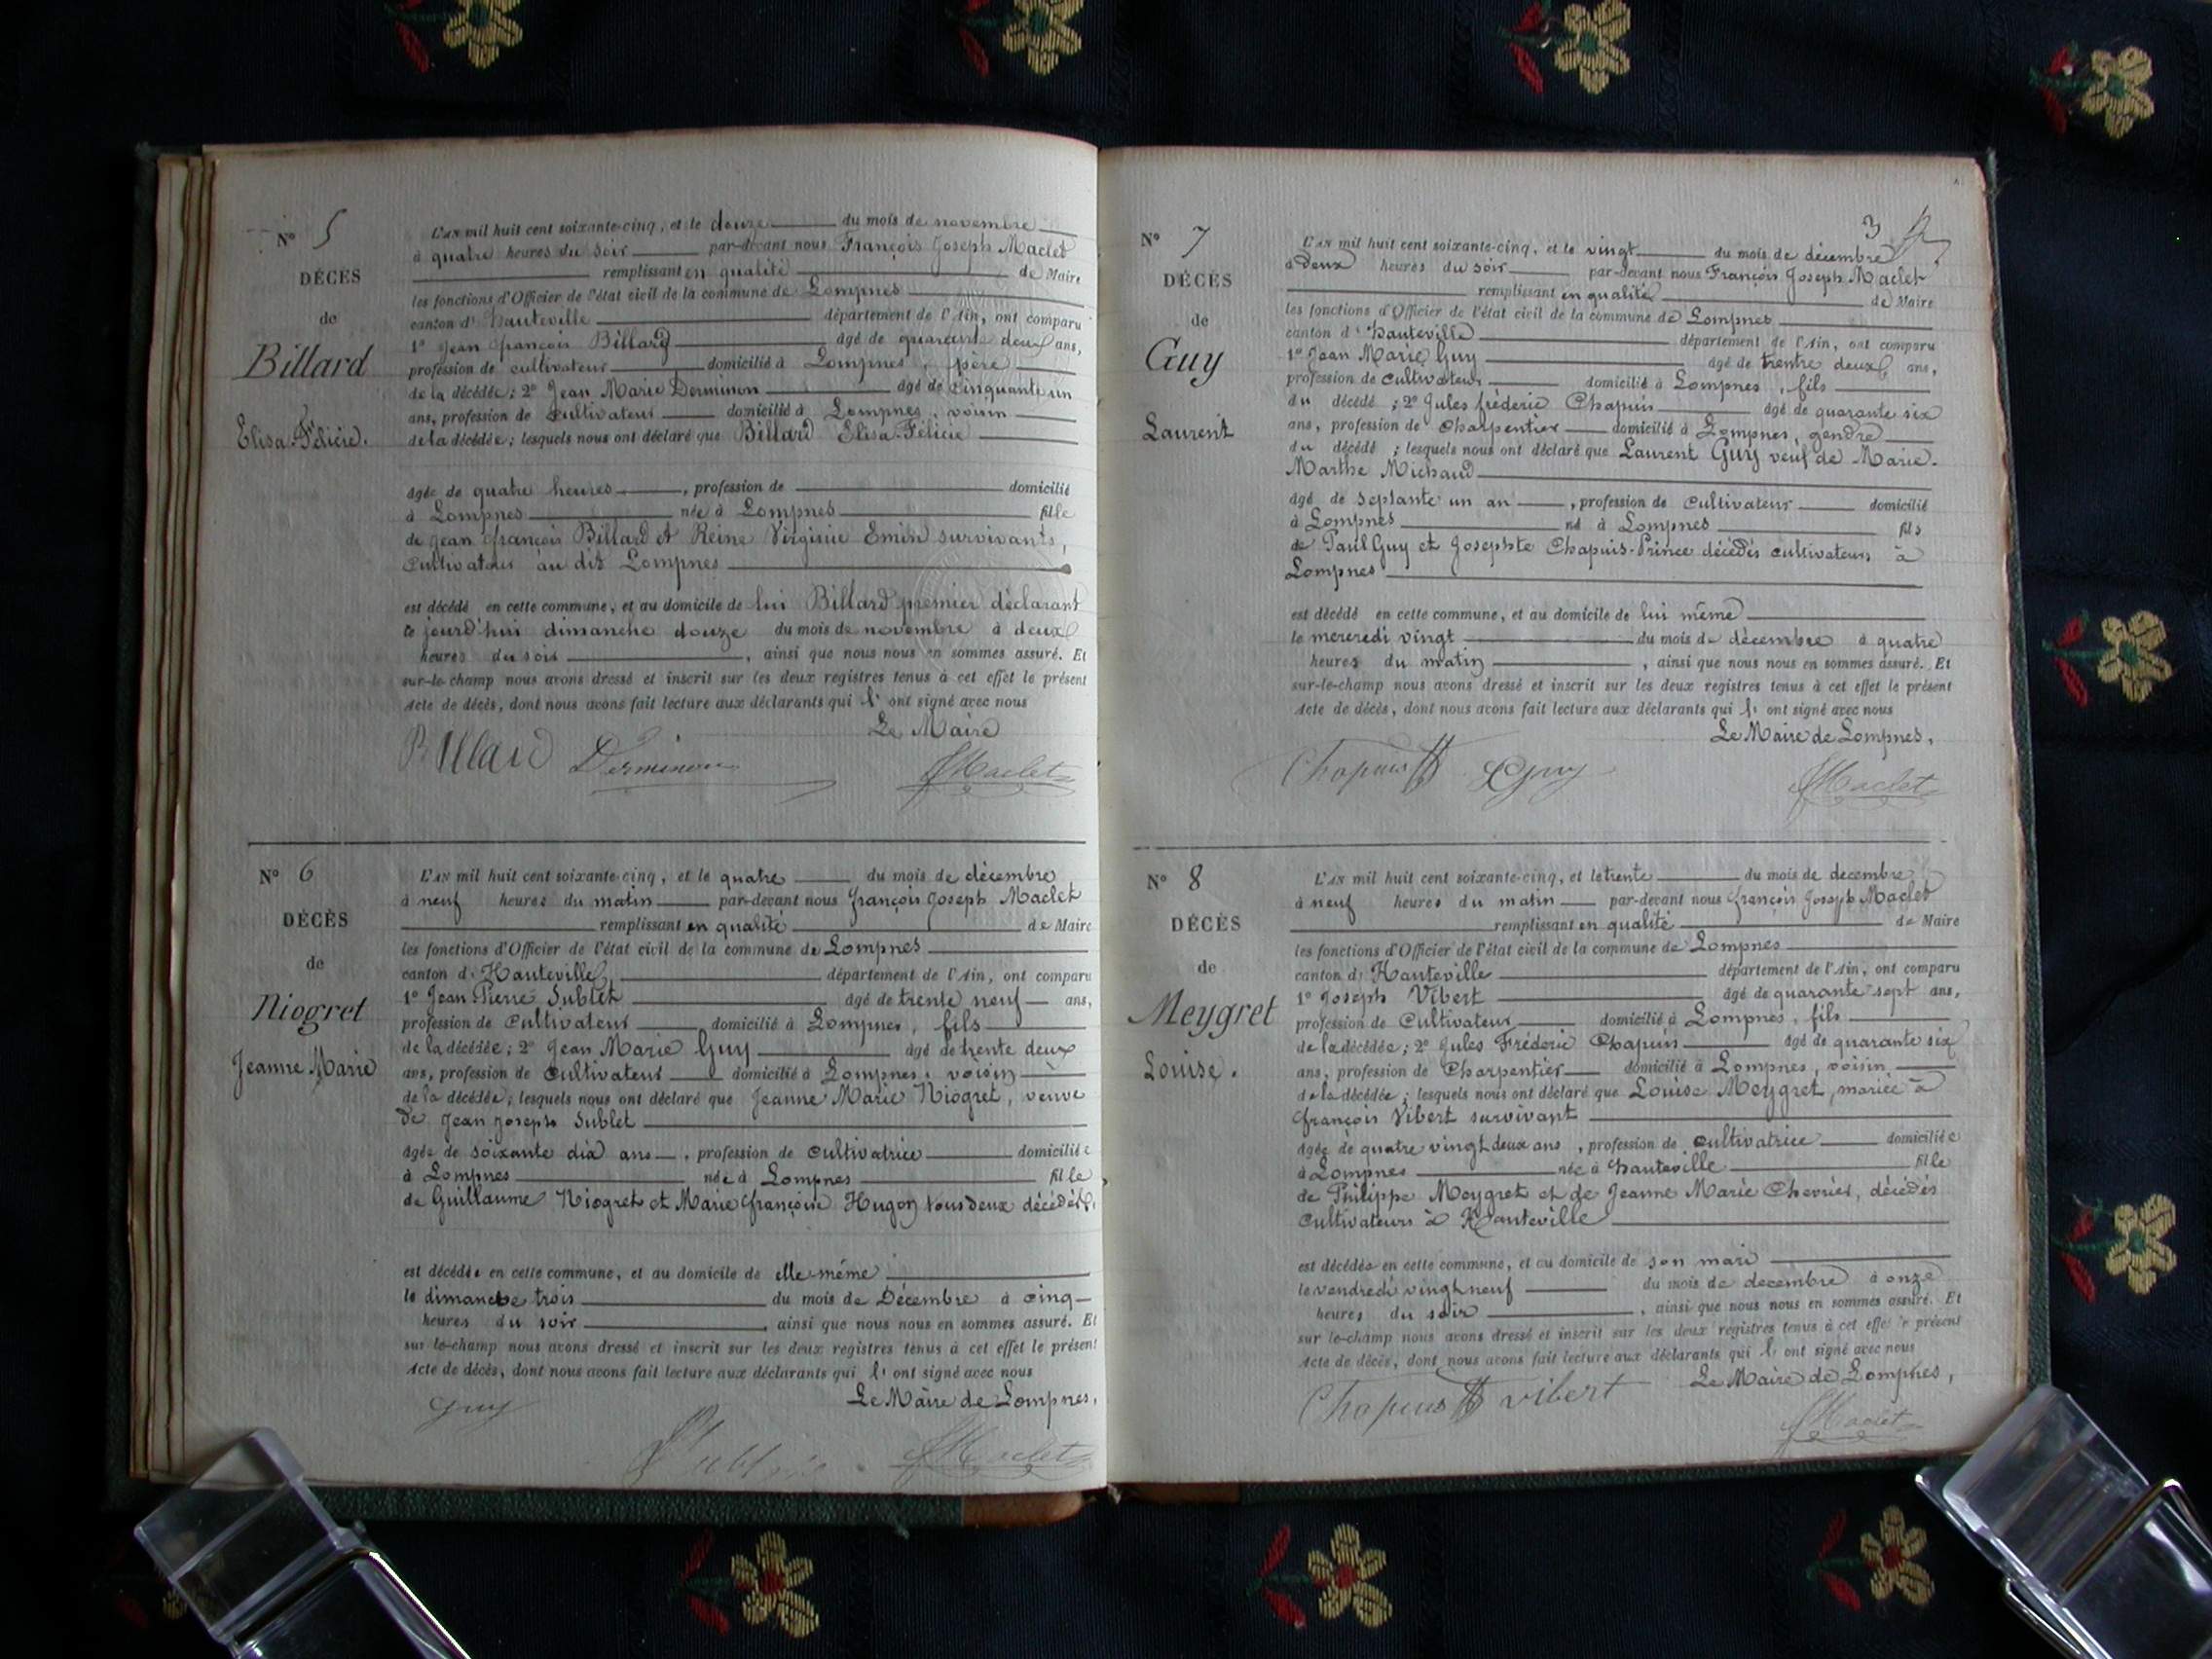 N° 5
DÉCÈS
de
Billard
Elisa-Félicie.
L'AN mil huit cent soixante-cinq, et le douze du mois de novembre
à quatre heures du soir par-devant nous François Joseph Maclet
remplissant en qualité de Maire
les fonctions d'Officier de l'état civil de la commune de Lompnes
canton d' hauteville département de l'Ain, ont comparu
1° Jean françois Billard âgé de quarante deux ans,
profession de cultivateur domicilié à Lompnes, père
de la décédée; 2° Jean Marie Derminon âgé de cinquante un
ans, profession de cultivateur domicilié à Lompnes, voisin
de la décédée; lesquels nous ont déclaré que Billard Elisa-Félicie
âgée de quatre heures, profession de domicilié
à Lompnes née à Lompnes fille
de Jean françois Billard et Reine Virginie Emin survivants,
cultivateurs au dit Lompnes
est décédé en cette commune, et au domicile de lui Billard premier déclarant
ce jourd'hui dimanche douze du mois de novembre à deux
heures du soir, ainsi que nous nous en sommes assuré. Et
sur-le-champ nous avons dressé et inscrit sur les deux registres tenus à cet effet le présent
Acte de décès, dont nous avons fait lecture aux déclarants qui l' ont signé avec nous
Le Maire
Billard Derminon Maclet
N° 6
DÉCÈS
de
Niogret
Jeanne Marie
L'AN mil huit cent soixante-cinq, et le quatre du mois de décembre
à neuf heures du matin par-devant nous françois Joseph Maclet
remplissant en qualité de Maire
les fonctions d'Officier de l'état civil de la commune de Lompnes
canton d' Hauteville département de l'Ain, ont comparu
1° Jean Pierre Sublet âgé de trente neuf ans,
profession de cultivateur domicilié à Lompnes, fils
de la décédée; 2° Jean Marie Guy âgé de trente deux
ans, profession de cultivateur domicilié à Lompnes, voisin
de la décédée; lesquels nous ont déclaré que Jeanne Marie Niogret, veuve
de Jean Joseph Sublet
âgée de soixante dix ans, profession de cultivatrice domiciliée
à Lompnes née à Lompnes fille
de Guillaume Niogret et Marie françoise Hugon tous deux décédés.
est décédée en cette commune, et au domicile de elle même
le dimanche trois du mois de Décembre à cinq
heures du soir, ainsi que nous nous en sommes assuré. Et
sur-le-champ nous avons dressé et inscrit sur les deux registres tenus à cet effet le présent
Acte de décès, dont nous avons fait lecture aux déclarants qui l' ont signé avec nous
Le Maire de Lompnes,
Guy Maclet
3
N° 7
DÉCÈS
de
Guy
Laurent
L'AN mil huit cent soixante-cinq, et le vingt du mois de décembre
à Deux heures du soir par-devant nous François Joseph Maclet
remplissant en qualité de Maire
les fonctions d'Officier de l'état civil de la commune de Lompnes
canton d' hauteville département de l'Ain, ont comparu
1° Jean Marie Guy âgé de trentre deux ans,
profession de cultivateur domicilié à Lompnes, fils
du décédé; 2° Jules fréderic Chapuis âgé de quarante six
ans, profession de Charpentier domicilié à Lompnes, gendre
du décédé; lesquels nous ont déclaré que Laurent Guy veuf de Marie-
Marthe Michaud
âgé de septante un an, profession de cultivateur domicilié
à Lompnes né à Lompnes fils
de Paul Guy et Josephte Chapuis-Prince décédés cultivateurs à
Lompnes
est décédé en cette commune, et au domicile de lui même
le mercredi vingt du mois de décembre à quatre
heures du matin, ainsi que nous nous en sommes assuré. Et
sur-le-champ nous avons dressé et inscrit sur les deux registres tenus à cet effet le présent
Acte de décès, dont nous avons fait lecture aux déclarants qui l' ont signé avec nous
Le Maire de Lompnes,
Chapuis Guy Maclet
N° 8
DÉCÈS
de
Meygret
Louise.
L'AN mil huit cent soixante-cinq, et le trente du mois de decembre
à neuf heures du matin par-devant nous françois Joseph Maclet
remplissant en qualité de Maire
les fonctions d'Officier de l'état civil de la commune de Lompnes
canton d' Hauteville département de l'Ain, ont comparu
1° Joseph Vibert âgé de quarante sept ans,
profession de Cultivateur domicilié à Lompnes, fils
de la décédée; 2° Jules Fréderic Chapuis âgé de quarante six
ans, profession de Charpentier domicilié à Lompnes, voisin
de la décédée; lesquels nous ont déclaré que Louise Meygret, mariée à
françois Vibert survivant
âgée de quatre vingt deux ans, profession de cultivatrice domiciliée
à Lompnes née à hauteville fille
de Philippe Meygret et de Jeanne Marie Chevrier, décédés
cultivateurs à Hauteville
est décédée en cette commune, et au domicile de son mari
le vendredi vingt neuf du mois de decembre à onze
heures du soir, ainsi que nous nous en sommes assuré. Et
sur-le-champ nous avons dressé et inscrit sur les deux registres tenus à cet effet le présent
Acte de décès, dont nous avons fait lecture aux déclarants qui l' ont signé avec nous
Le Maire de Lompnes,
Chapuis vibert Maclet